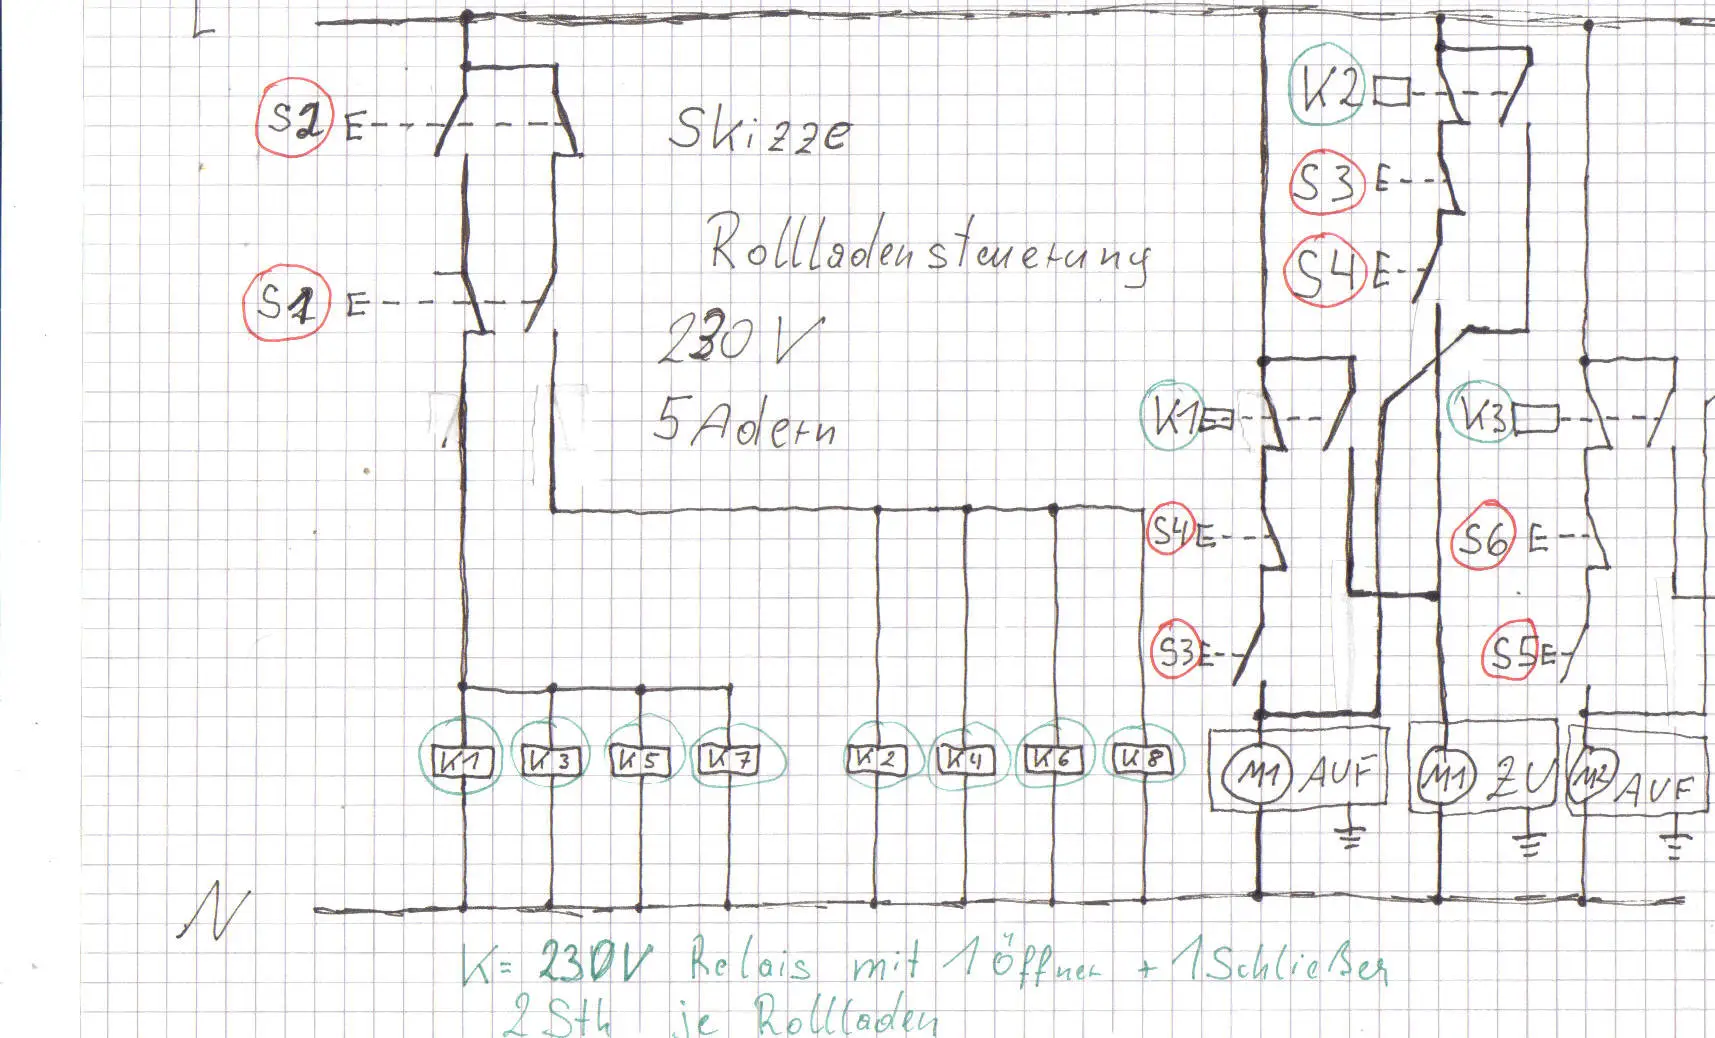 L
K2
S2 E
Skizze
S3 E
Rollladensteuerung
S4 E
S1 E
230 V
K1
K3
5 Adern
S4 E
S6 E
S3 E
S5 E
K1 K3 K5 K7 K2 K4 K6 K8 M1 AUF M1 ZU M2 AUF
N
K= 230V Relais mit 1 Öffner + 1 Schließer
2 Stk je Rollladen